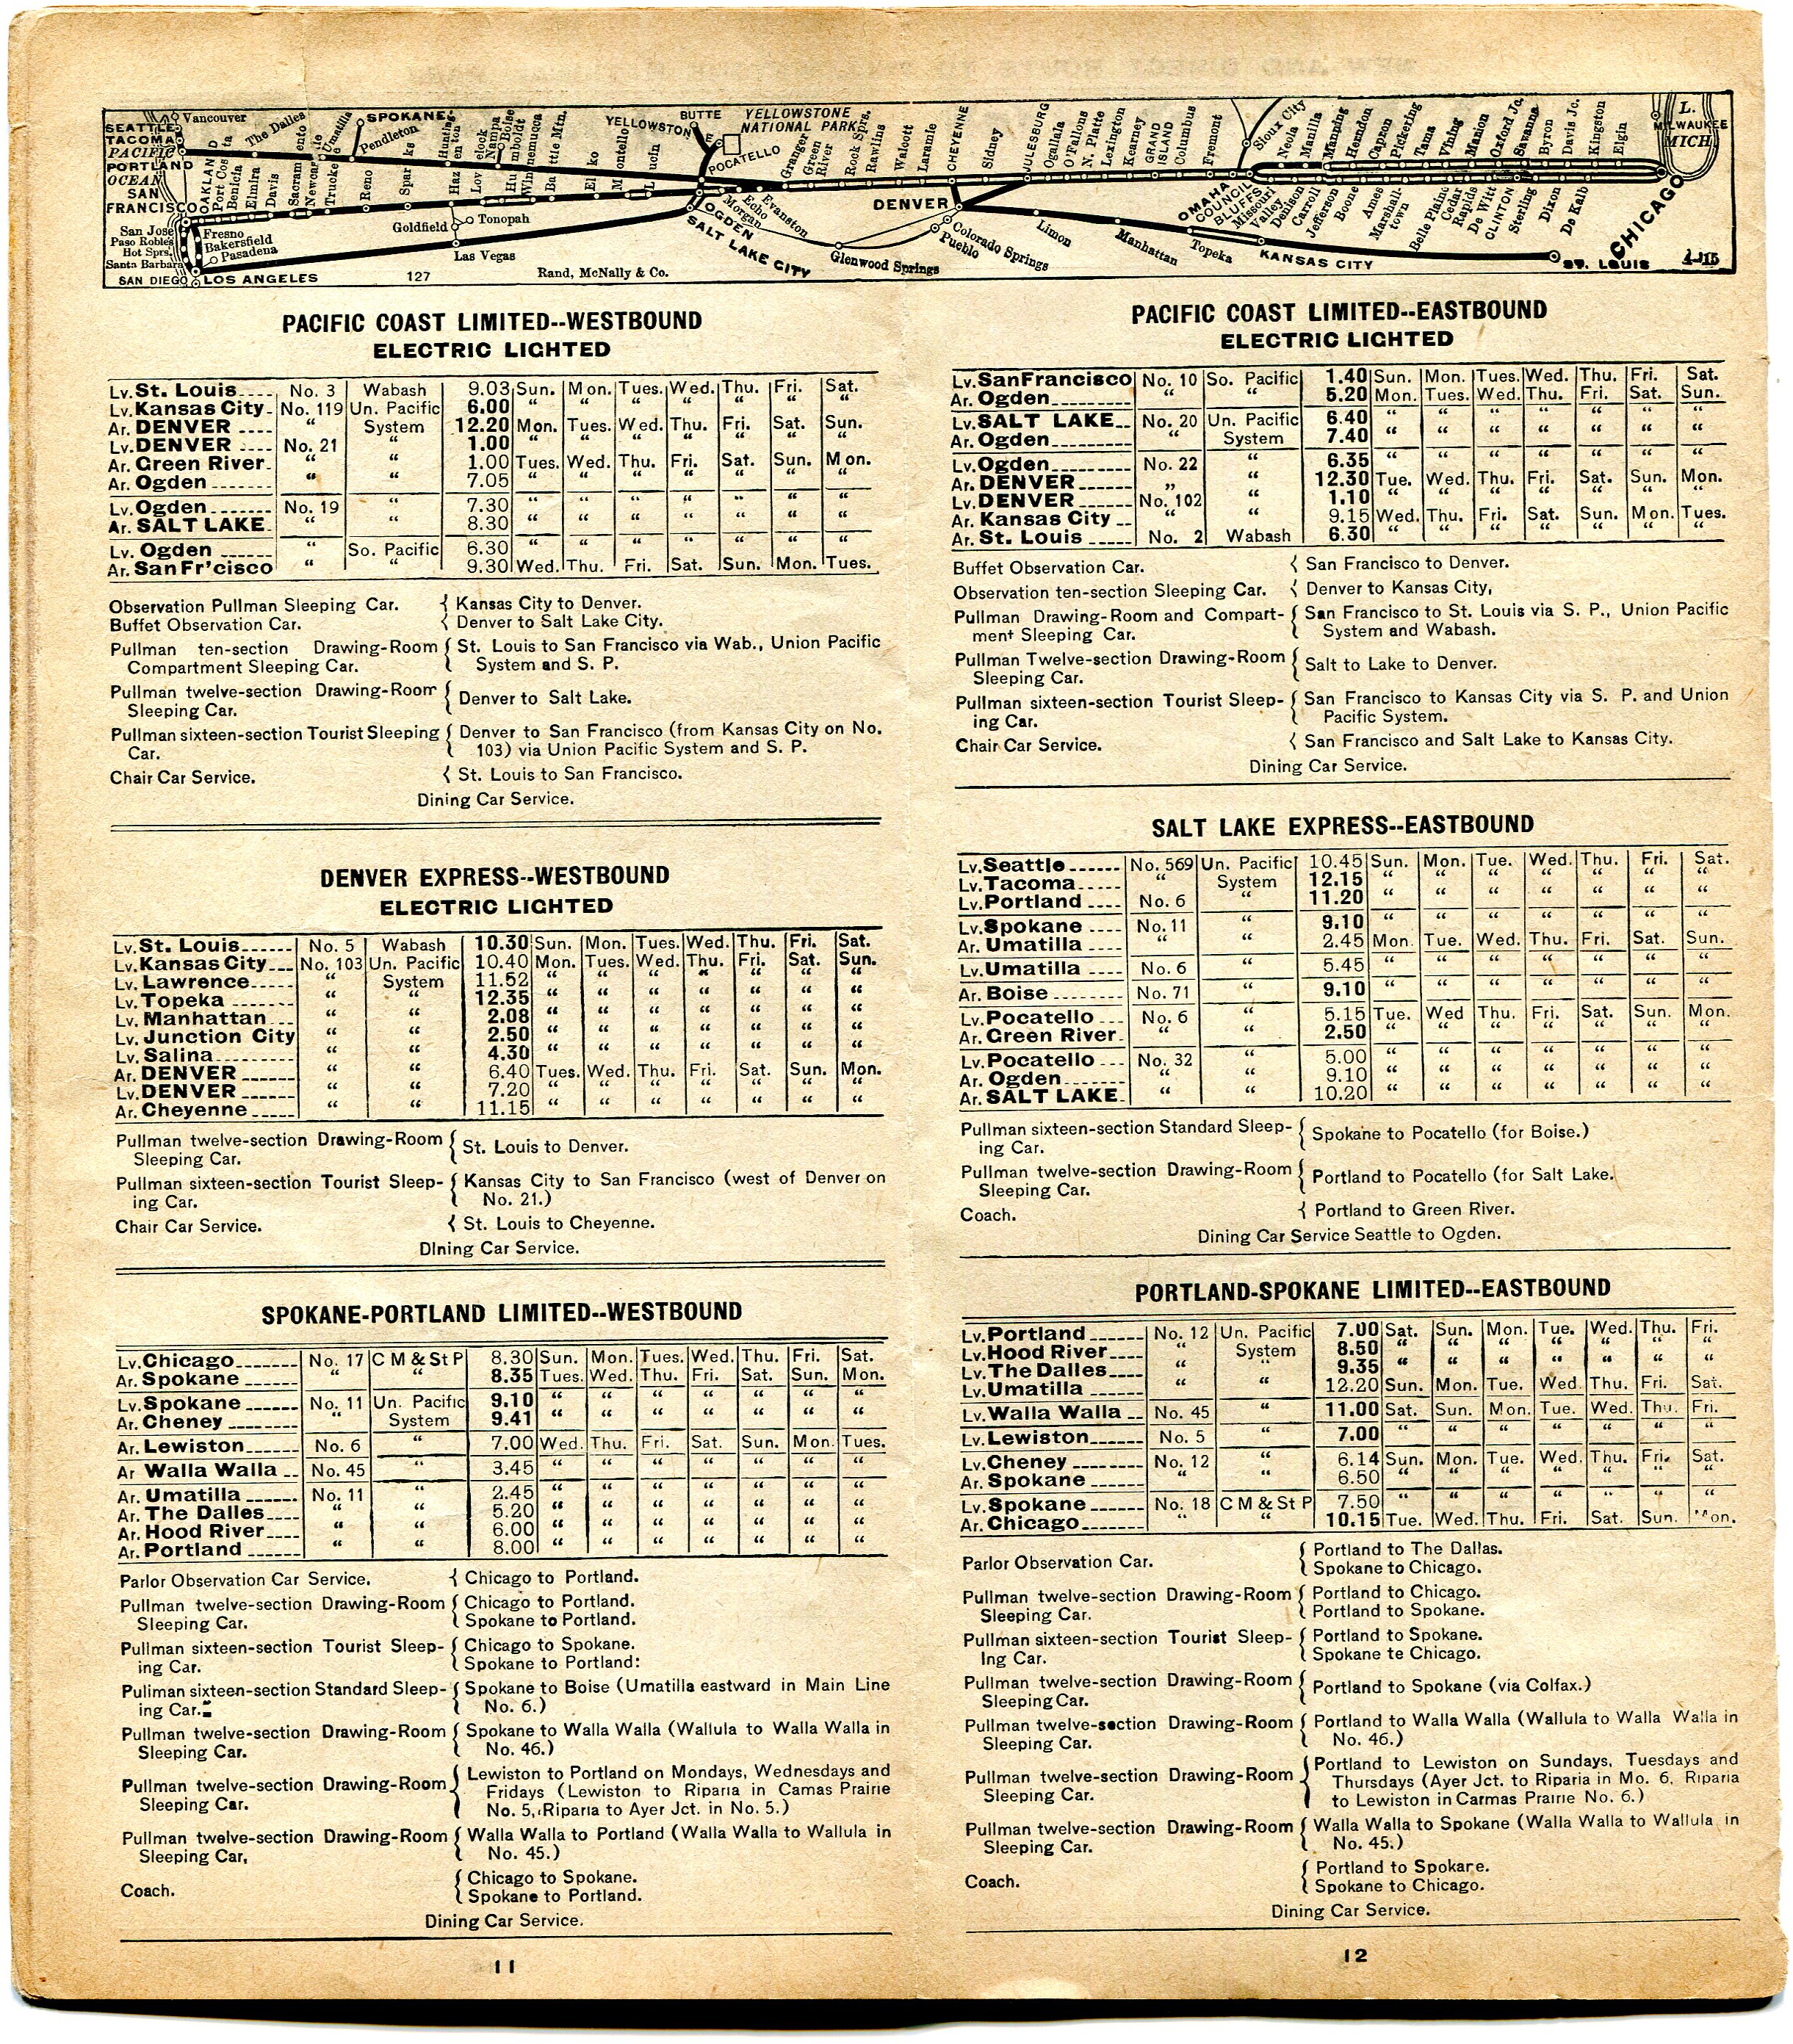 Vancouver
SEATTLE
TACOMA
PACIFIC
PORTLAND
OCEAN
SAN
FRANCISCO
OAKLAND
Port Costa
Benicia
Elmira
Davis
Sacramento
Newcastle
Truckee
Reno
Sparks
Hazen
Humboldt
Winnemucca
Battle Mtn.
Elko
Montello
Lucin
The Dalles
Umatilla
SPOKANE
Pendleton
Huntington
Nampa
Boise
BUTTE
YELLOWSTONE
YELLOWSTONE
NATIONAL PARK
POCATELLO
Granger
Green
River
Rock Sprs.
Rawlins
Walcott
Laramie
CHEYENNE
Sidney
JULESBURG
Ogallala
O'Fallons
N. Platte
Lexington
Kearney
GRAND
ISLAND
Columbus
Fremont
Sioux City
Neola
Manilla
Manning
Herndon
Capron
Pickering
Tama
Vining
Marion
Oxford Jc.
Savanna
Byron
Davis Jc.
Kingston
Elgin
L.
MILWAUKEE
MICH.
CHICAGO
OMAHA
COUNCIL
BLUFFS
Missouri
Valley
Denison
Carroll
Jefferson
Boone
Ames
Marshall-
town
Belle Plaine
Cedar
Rapids
De Witt
CLINTON
Sterling
Dixon
De Kalb
Goldfield
Tonopah
Las Vegas
San Jose
Paso Robles
Hot Sprs.
Santa Barbara
Fresno
Bakersfield
Pasadena
SAN DIEGO
LOS ANGELES
127
Rand, McNally & Co.
OGDEN
SALT LAKE CITY
Morgan
Echo
Evanston
DENVER
Glenwood Springs
Pueblo
Colorado Springs
Limon
Manhattan
Topeka
KANSAS CITY
ST. LOUIS
4-J15
PACIFIC COAST LIMITED--WESTBOUND
ELECTRIC LIGHTED
Lv. St. Louis No. 3 Wabash 9.03 Sun. Mon. Tues. Wed. Thu. Fri. Sat.
Lv. Kansas City No. 119 Un. Pacific 6.00 “ “ “ “ “ “ “
Ar. DENVER “ System 12.20 Mon. Tues. Wed. Thu. Fri. Sat. Sun.
Lv. DENVER No. 21 “ 1.00 “ “ “ “ “ “ “
Ar. Green River “ “ 1.00 Tues. Wed. Thu. Fri. Sat. Sun. Mon.
Ar. Ogden “ “ 7.05 “ “ “ “ “ “ “
Lv. Ogden No. 19 “ 7.30 “ “ “ “ “ “ “
Ar. SALT LAKE “ “ 8.30 “ “ “ “ “ “ “
Lv. Ogden “ So. Pacific 6.30 “ “ “ “ “ “ “
Ar. San Fr'cisco “ “ 9.30 Wed. Thu. Fri. Sat. Sun. Mon. Tues.
Observation Pullman Sleeping Car. { Kansas City to Denver.
Buffet Observation Car. { Denver to Salt Lake City.
Pullman ten-section Drawing-Room { St. Louis to San Francisco via Wab., Union Pacific
Compartment Sleeping Car. System and S. P.
Pullman twelve-section Drawing-Room { Denver to Salt Lake.
Sleeping Car.
Pullman sixteen-section Tourist Sleeping { Denver to San Francisco (from Kansas City on No.
Car. 103) via Union Pacific System and S. P.
Chair Car Service. { St. Louis to San Francisco.
Dining Car Service.
DENVER EXPRESS--WESTBOUND
ELECTRIC LIGHTED
Lv. St. Louis No. 5 Wabash 10.30 Sun. Mon. Tues. Wed. Thu. Fri. Sat.
Lv. Kansas City No. 103 Un. Pacific 10.40 Mon. Tues. Wed. Thu. Fri. Sat. Sun.
Lv. Lawrence “ System 11.52 “ “ “ “ “ “ “
Lv. Topeka “ “ 12.35 “ “ “ “ “ “ “
Lv. Manhattan “ “ 2.08 “ “ “ “ “ “ “
Lv. Junction City “ “ 2.50 “ “ “ “ “ “ “
Lv. Salina “ “ 4.30 “ “ “ “ “ “ “
Ar. DENVER “ “ 6.40 Tues. Wed. Thu. Fri. Sat. Sun. Mon.
Lv. DENVER “ “ 7.20 “ “ “ “ “ “ “
Ar. Cheyenne “ “ 11.15 “ “ “ “ “ “ “
Pullman twelve-section Drawing-Room { St. Louis to Denver.
Sleeping Car.
Pullman sixteen-section Tourist Sleep- { Kansas City to San Francisco (west of Denver on
ing Car. No. 21.)
Chair Car Service. { St. Louis to Cheyenne.
Dining Car Service.
SPOKANE-PORTLAND LIMITED--WESTBOUND
Lv. Chicago No. 17 C M & St P 8.30 Sun. Mon. Tues. Wed. Thu. Fri. Sat.
Ar. Spokane “ “ 8.35 Tues. Wed. Thu. Fri. Sat. Sun. Mon.
Lv. Spokane No. 11 Un. Pacific 9.10 “ “ “ “ “ “ “
Ar. Cheney “ System 9.41 “ “ “ “ “ “ “
Ar. Lewiston No. 6 “ 7.00 Wed. Thu. Fri. Sat. Sun. Mon. Tues.
Ar Walla Walla No. 45 “ 3.45 “ “ “ “ “ “ “
Ar. Umatilla No. 11 “ 2.45 “ “ “ “ “ “ “
Ar. The Dalles “ “ 5.20 “ “ “ “ “ “ “
Ar. Hood River “ “ 6.00 “ “ “ “ “ “ “
Ar. Portland “ “ 8.00 “ “ “ “ “ “ “
Parlor Observation Car Service. { Chicago to Portland.
Pullman twelve-section Drawing-Room { Chicago to Portland.
Sleeping Car. Spokane to Portland.
Pullman sixteen-section Tourist Sleep- { Chicago to Spokane.
ing Car. Spokane to Portland:
Pullman sixteen-section Standard Sleep- { Spokane to Boise (Umatilla eastward in Main Line
ing Car. No. 6.)
Pullman twelve-section Drawing-Room { Spokane to Walla Walla (Wallula to Walla Walla in
Sleeping Car. No. 46.)
Pullman twelve-section Drawing-Room { Lewiston to Portland on Mondays, Wednesdays and
Sleeping Car. Fridays (Lewiston to Riparia in Camas Prairie
No. 5, Riparia to Ayer Jct. in No. 5.)
Pullman twelve-section Drawing-Room { Walla Walla to Portland (Walla Walla to Wallula in
Sleeping Car, No. 45.)
Coach. { Chicago to Spokane.
Spokane to Portland.
Dining Car Service.
11
PACIFIC COAST LIMITED--EASTBOUND
ELECTRIC LIGHTED
Lv. San Francisco No. 10 So. Pacific 1.40 Sun. Mon. Tues. Wed. Thu. Fri. Sat.
Ar. Ogden “ “ 5.20 Mon. Tues. Wed. Thu. Fri. Sat. Sun.
Lv. SALT LAKE No. 20 Un. Pacific 6.40 “ “ “ “ “ “ “
Ar. Ogden “ System 7.40 “ “ “ “ “ “ “
Lv. Ogden No. 22 “ 6.35 “ “ “ “ “ “ “
Ar. DENVER „ “ 12.30 Tue. Wed. Thu. Fri. Sat. Sun. Mon.
Lv. DENVER No. 102 “ 1.10 “ “ “ “ “ “ “
Ar. Kansas City “ “ 9.15 Wed. Thu. Fri. Sat. Sun. Mon. Tues.
Ar. St. Louis No. 2 Wabash 6.30 “ “ “ “ “ “ “
Buffet Observation Car. { San Francisco to Denver.
Observation ten-section Sleeping Car. { Denver to Kansas City,
Pullman Drawing-Room and Compart- { San Francisco to St. Louis via S. P., Union Pacific
ment Sleeping Car. System and Wabash.
Pullman Twelve-section Drawing-Room { Salt to Lake to Denver.
Sleeping Car.
Pullman sixteen-section Tourist Sleep- { San Francisco to Kansas City via S. P. and Union
ing Car. Pacific System.
Chair Car Service. { San Francisco and Salt Lake to Kansas City.
Dining Car Service.
SALT LAKE EXPRESS--EASTBOUND
Lv. Seattle No. 569 Un. Pacific 10.45 Sun. Mon. Tue. Wed. Thu. Fri. Sat.
Lv. Tacoma “ System 12.15 “ “ “ “ “ “ “
Lv. Portland No. 6 11.20 “ “ “ “ “ “ “
Lv. Spokane No. 11 “ 9.10 “ “ “ “ “ “ “
Ar. Umatilla “ “ 2.45 Mon. Tue. Wed. Thu. Fri. Sat. Sun.
Lv. Umatilla No. 6 “ 5.45 “ “ “ “ “ “ “
Ar. Boise No. 71 “ 9.10 “ “ “ “ “ “ “
Lv. Pocatello No. 6 “ 5.15 Tue. Wed Thu. Fri. Sat. Sun. Mon.
Ar. Green River “ “ 2.50 “ “ “ “ “ “ “
Lv. Pocatello No. 32 “ 5.00 “ “ “ “ “ “ “
Ar. Ogden “ “ 9.10 “ “ “ “ “ “ “
Ar. SALT LAKE “ “ 10.20 “ “ “ “ “ “ “
Pullman sixteen-section Standard Sleep- { Spokane to Pocatello (for Boise.)
ing Car.
Pullman twelve-section Drawing-Room { Portland to Pocatello (for Salt Lake.
Sleeping Car.
Coach. { Portland to Green River.
Dining Car Service Seattle to Ogden.
PORTLAND-SPOKANE LIMITED--EASTBOUND
Lv. Portland No. 12 Un. Pacific 7.00 Sat. Sun. Mon. Tue. Wed. Thu. Fri.
Lv. Hood River “ System 8.50 “ “ “ “ “ “ “
Lv. The Dalles “ “ 9.35 “ “ “ “ “ “ “
Lv. Umatilla “ “ 12.20 Sun. Mon. Tue. Wed. Thu. Fri. Sat.
Lv. Walla Walla No. 45 “ 11.00 Sat. Sun. Mon. Tue. Wed. Thu. Fri.
Lv. Lewiston No. 5 “ 7.00 “ “ “ “ “ “ “
Lv. Cheney No. 12 “ 6.14 Sun. Mon. Tue. Wed. Thu. Fri. Sat.
Ar. Spokane “ “ 6.50 “ “ “ “ “ “ “
Lv. Spokane No. 18 C M & St P 7.50 “ “ “ “ “ “ “
Ar. Chicago “ “ 10.15 Tue. Wed. Thu. Fri. Sat. Sun. Mon.
Parlor Observation Car. { Portland to The Dallas.
Spokane to Chicago.
Pullman twelve-section Drawing-Room { Portland to Chicago.
Sleeping Car. Portland to Spokane.
Pullman sixteen-section Tourist Sleep- { Portland to Spokane.
Ing Car. Spokane te Chicago.
Pullman twelve-section Drawing-Room { Portland to Spokane (via Colfax.)
Sleeping Car.
Pullman twelve-section Drawing-Room { Portland to Walla Walla (Wallula to Walla Walla in
Sleeping Car. No. 46.)
Pullman twelve-section Drawing-Room { Portland to Lewiston on Sundays, Tuesdays and
Sleeping Car. Thursdays (Ayer Jct. to Riparia in Mo. 6, Riparia
to Lewiston in Carmas Prairie No. 6.)
Pullman twelve-section Drawing-Room { Walla Walla to Spokane (Walla Walla to Wallula in
Sleeping Car. No. 45.)
Coach. { Portland to Spokare.
Spokane to Chicago.
Dining Car Service.
12